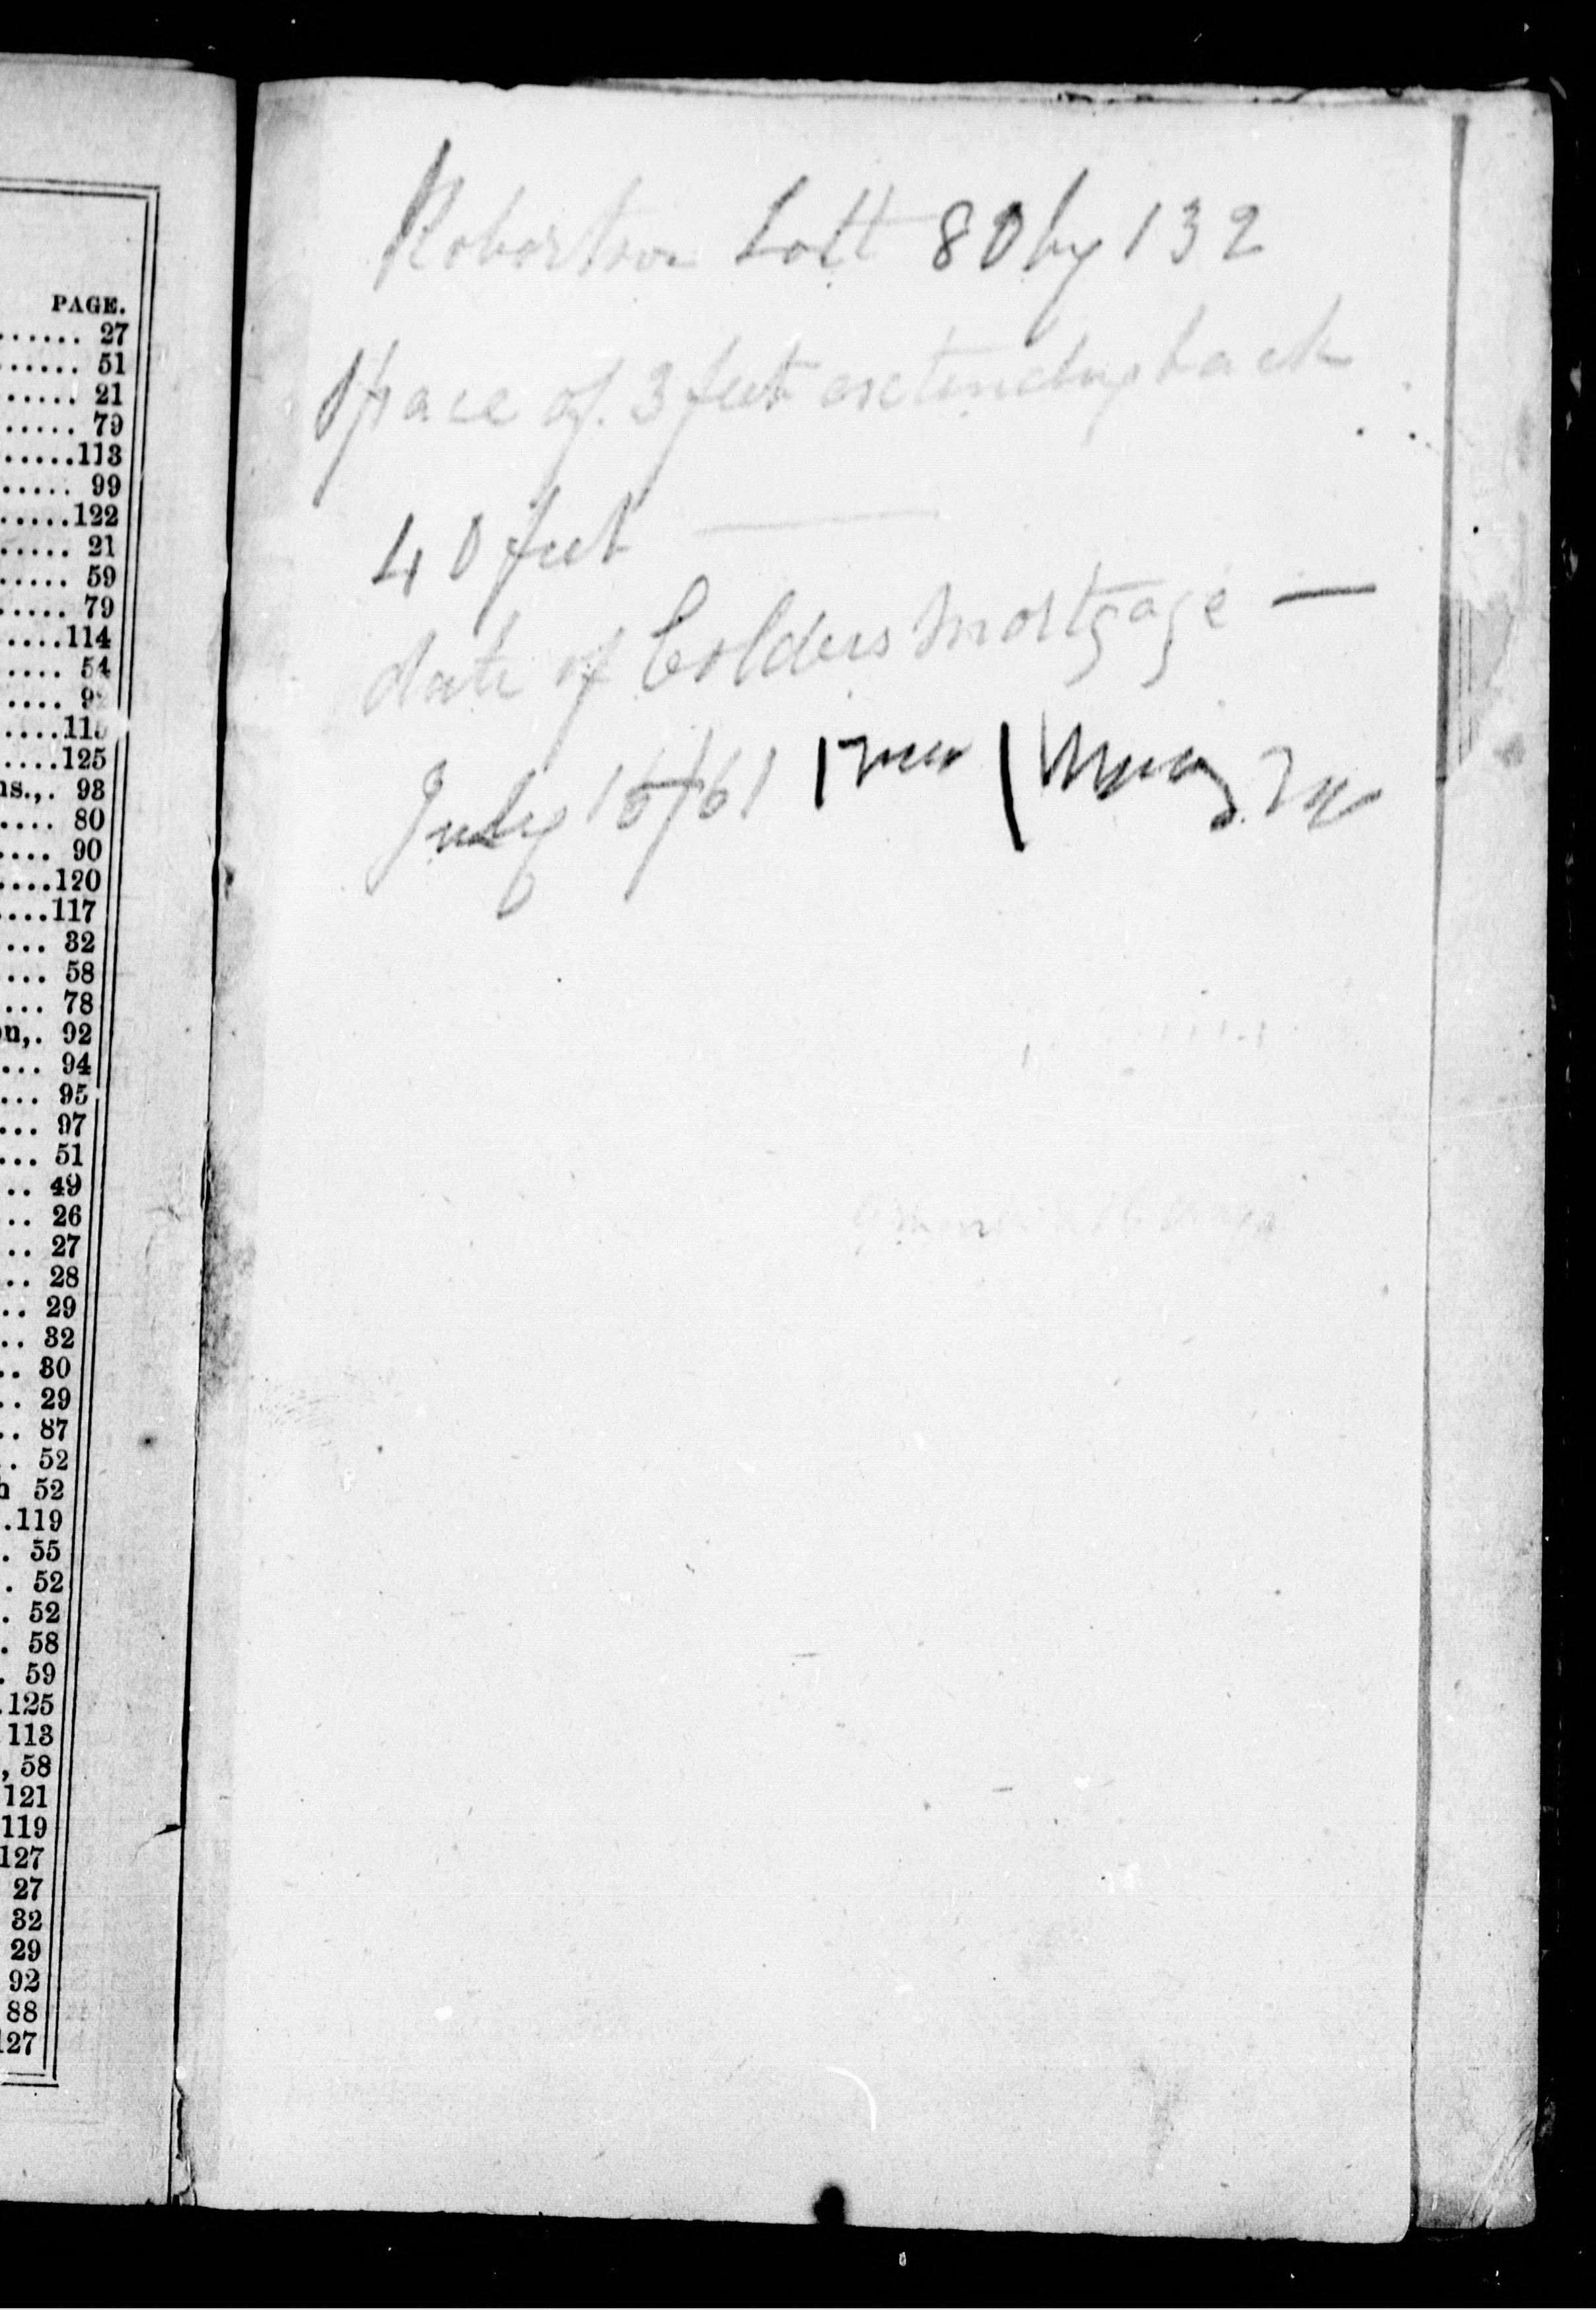 PAGE.
...... 27
...... 51
...... 21
...... 79
.....113
..... 99
.....122
..... 21
..... 59
..... 79
....114
.... 54
....125
ns.,. 93
.... 80
.... 90
....120
....117
... 32
... 58
... 78
on,. 92
... 94
... 95
... 97
... 51
.. 49
.. 26
.. 27
.. 28
.. 29
.. 32
.. 30
.. 29
.. 87
.. 52
h 52
.119
. 55
. 52
. 52
. 58
. 59
.125
113
, 58
121
119
127
27
32
29
92
88
127
Robertson Lott 80 by 132
Space of 3 feet extending back
40 feet
date of Colders Mortgage —
July 15/61